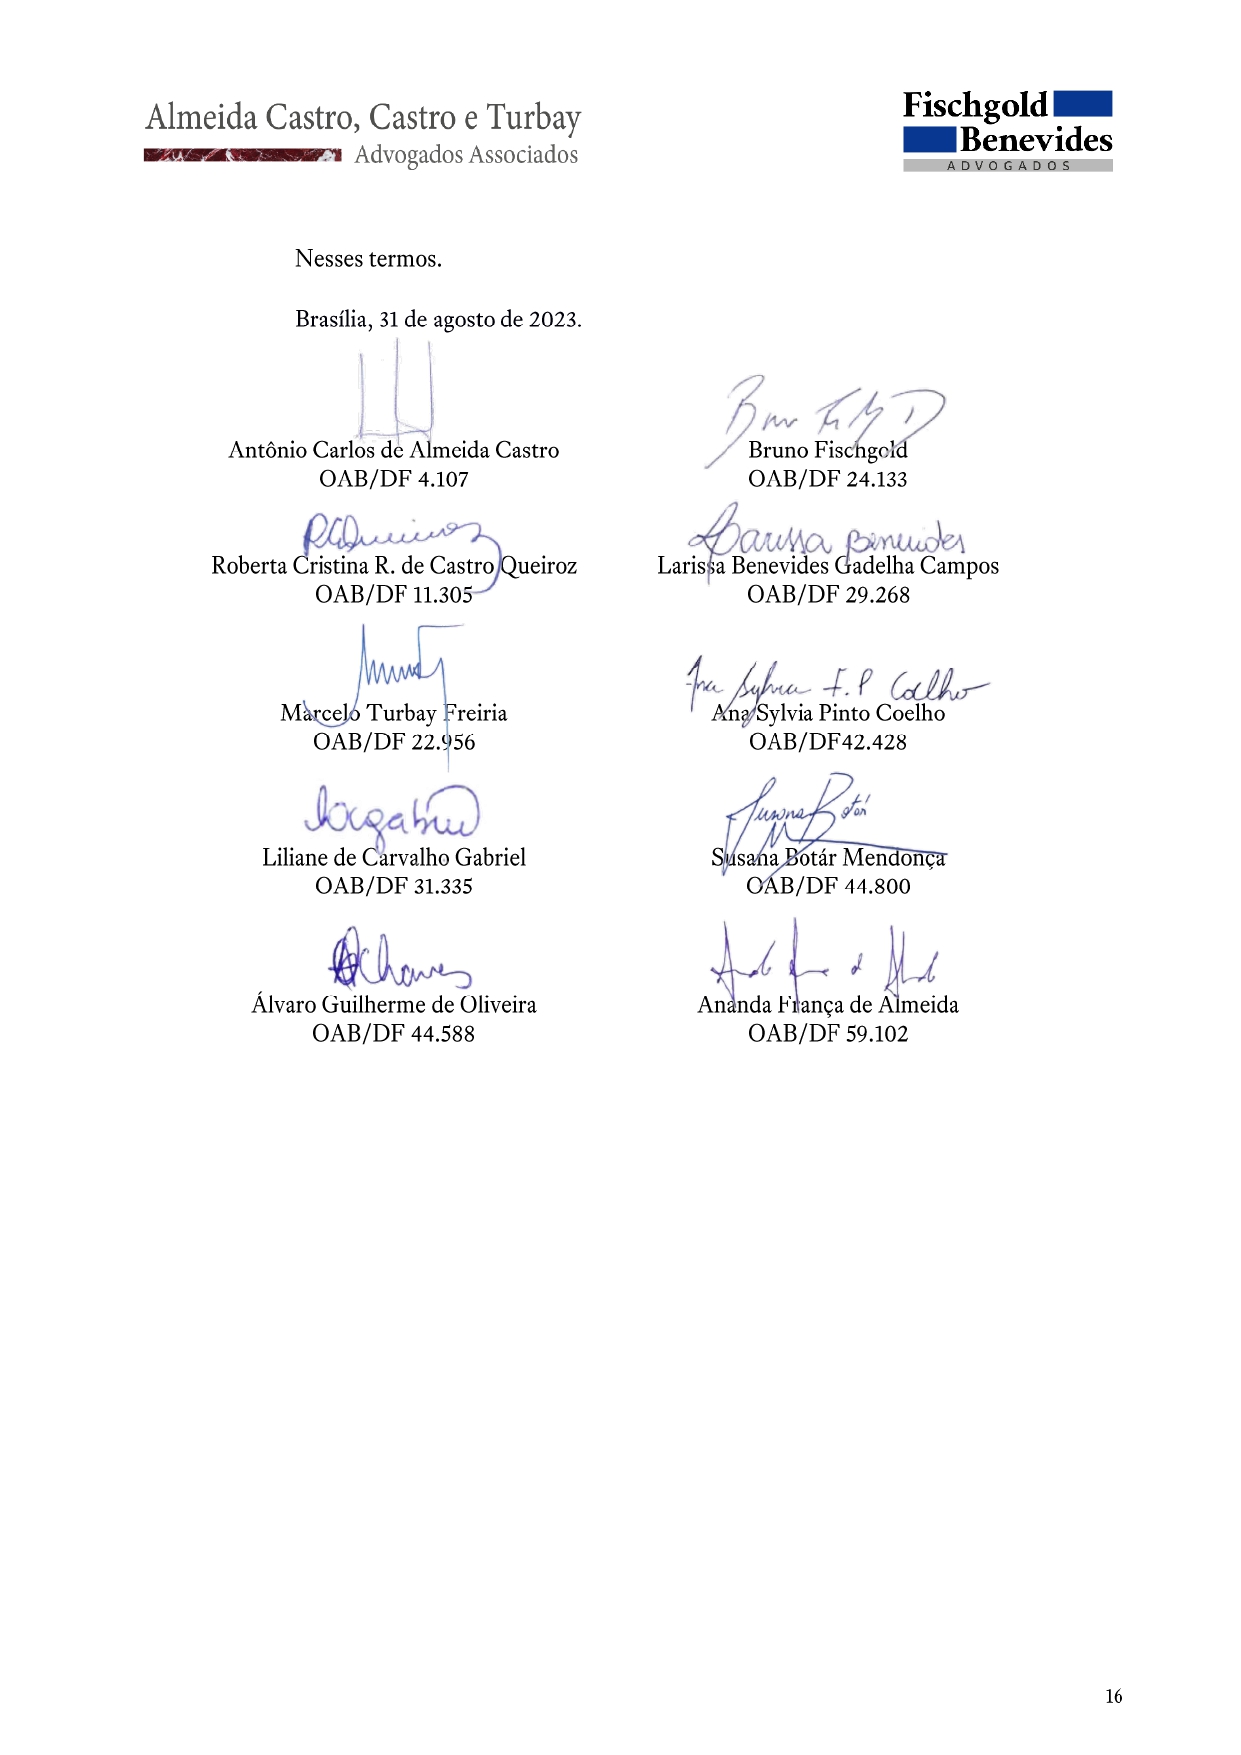 Almeida Castro, Castro e Turbay
Advogados Associados
Fischgold
Benevides
ADVOGADOS
Nesses termos.
Brasília, 31 de agosto de 2023.
Antônio Carlos de Almeida Castro
OAB/DF 4.107
Bruno Fischgold
OAB/DF 24.133
Larissa Benevides
Roberta Cristina R. de Castro Queiroz
OAB/DF 11.305
Larissa Benevides Gadelha Campos
OAB/DF 29.268
Ana Sylvia F. P Coelho
Marcelo Turbay Freiria
OAB/DF 22.956
Ana Sylvia Pinto Coelho
OAB/DF42.428
Susana Botár
Liliane de Carvalho Gabriel
OAB/DF 31.335
Susana Botár Mendonça
OAB/DF 44.800
Álvaro Guilherme de Oliveira
OAB/DF 44.588
Ananda França de Almeida
OAB/DF 59.102
16